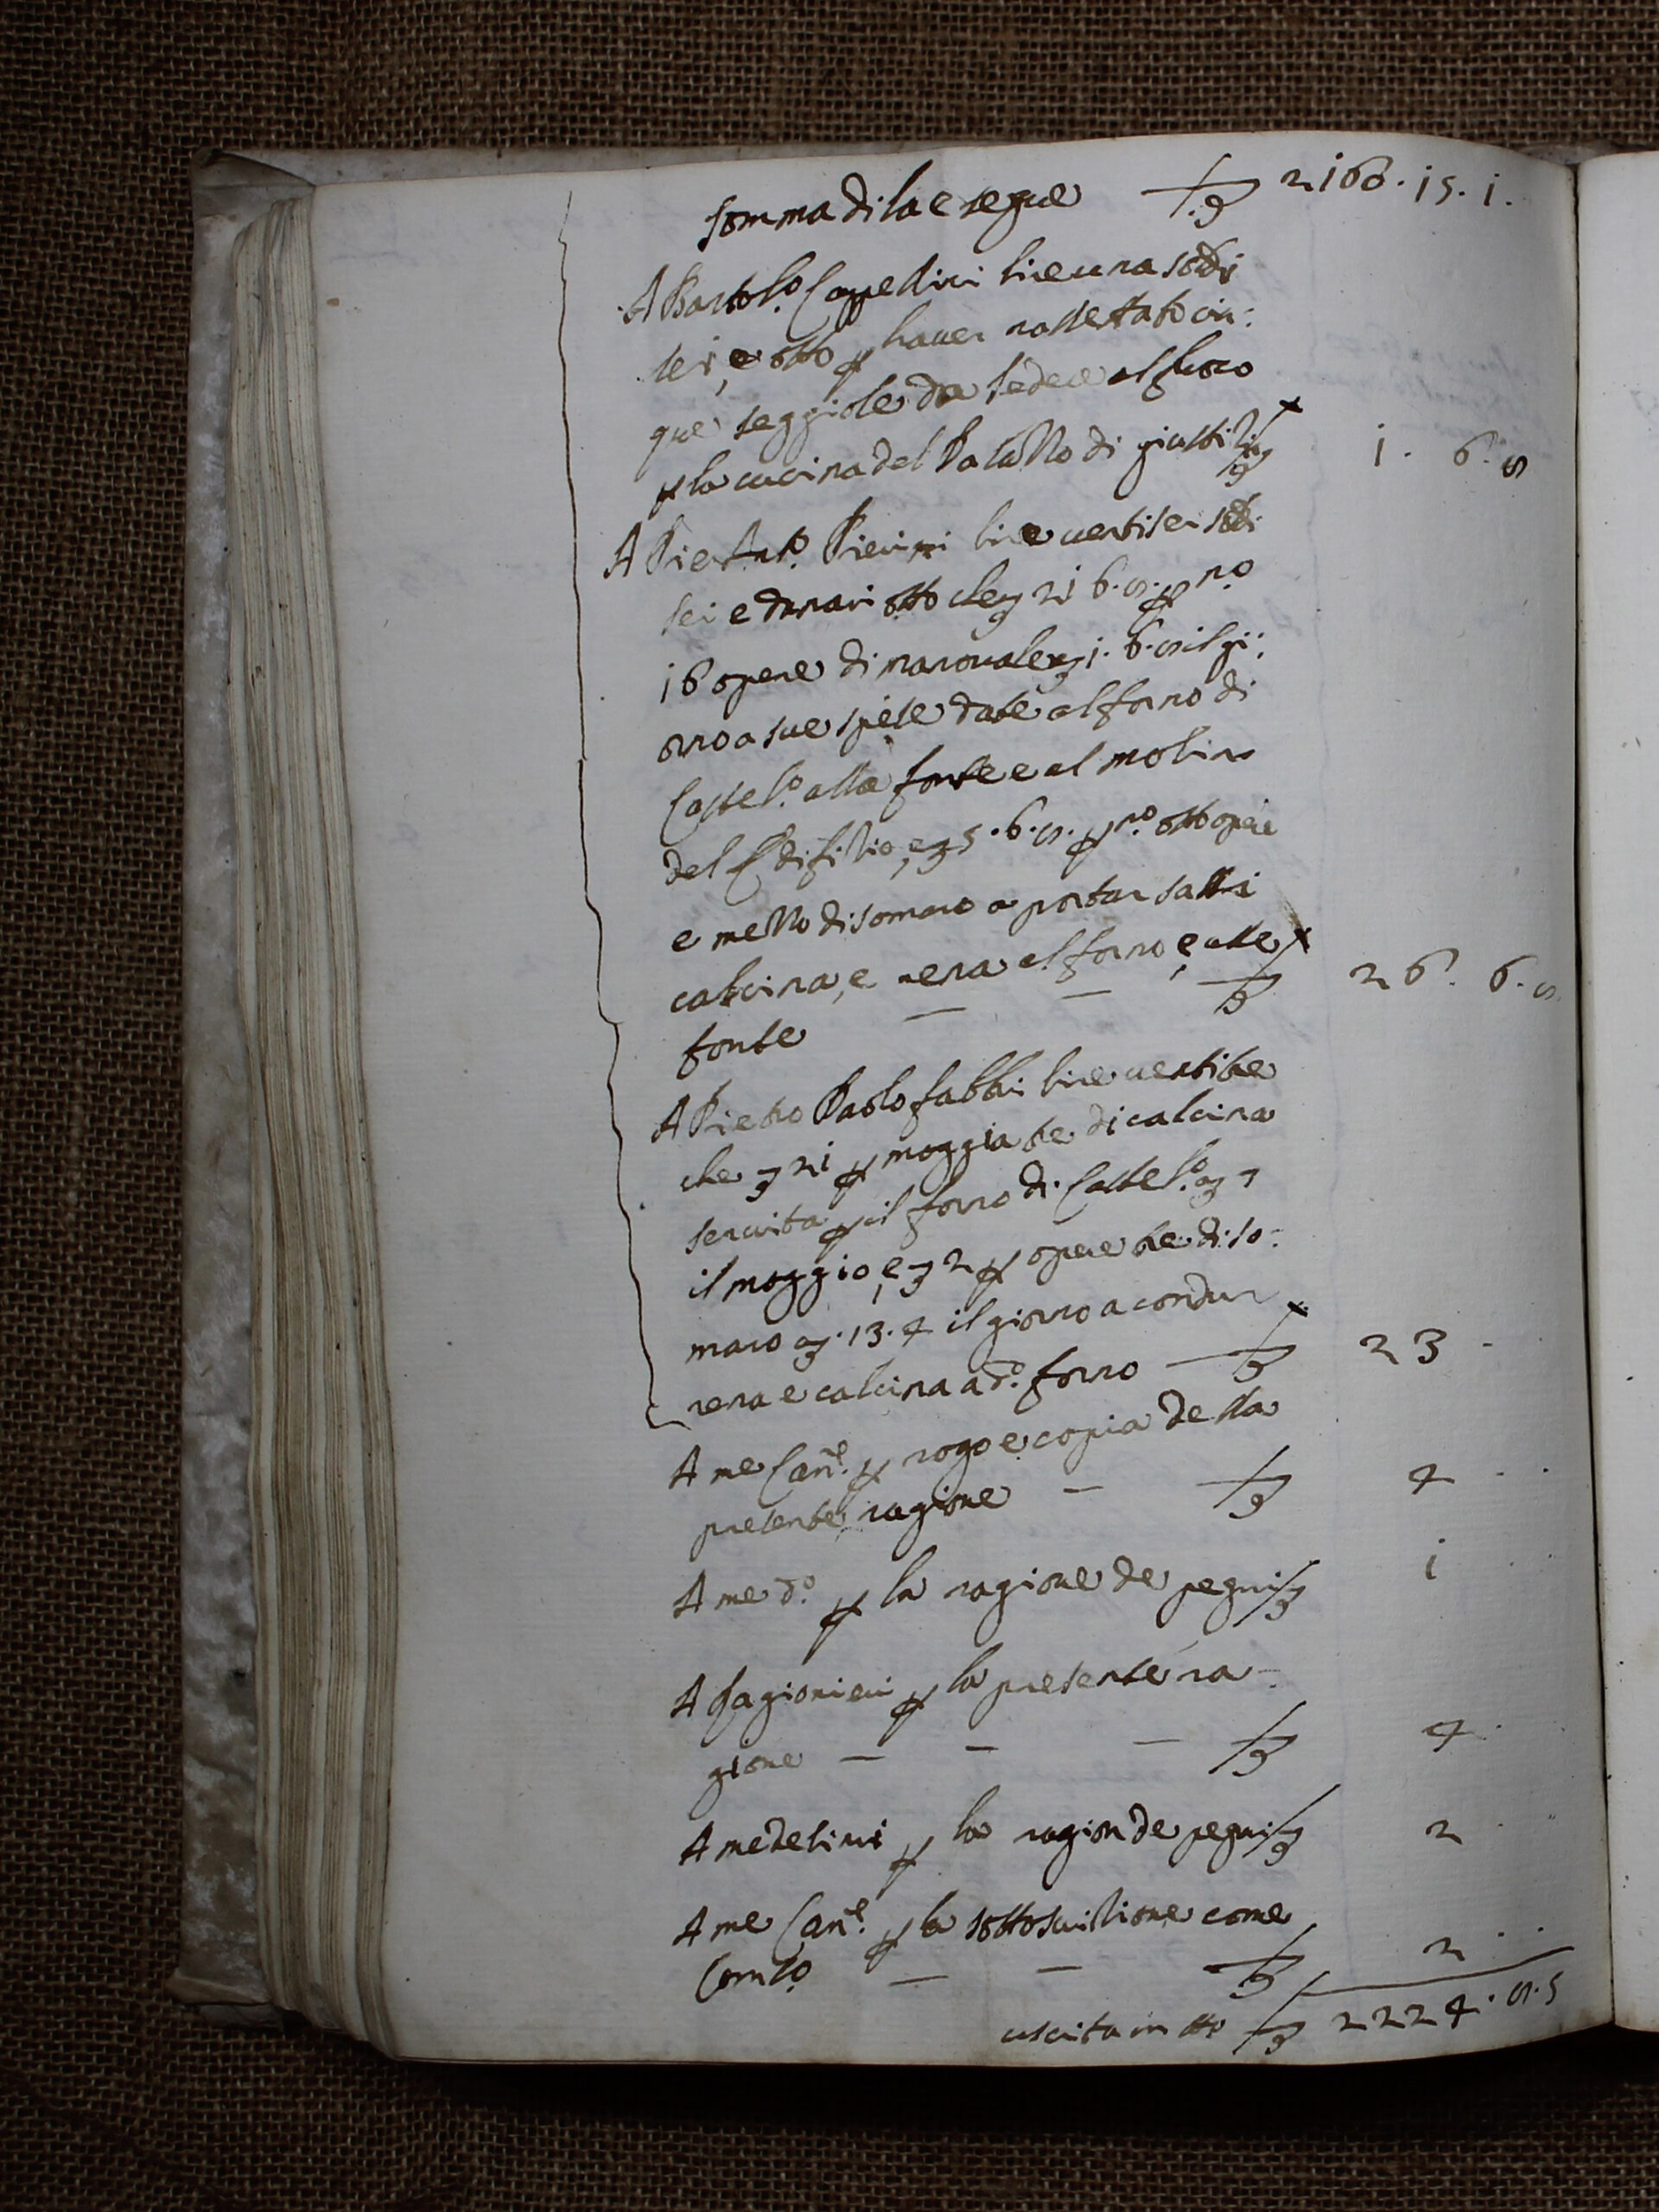 somma di la e segue £ 2160. 15. 1.
A Bartol.o Cappellini lire una soldi
sei, e otto p haver rassettato cin:
que seggiole da sedere al fuoco
p la cucina del Palazzo di giustitia £ 1. 6. 8
A Pier Ant.o Pierini lire ventisei soldi
sei e danari otto che £ 21 6. 8. p n.o
16 opere di marovale £ 1. 6. 8 il gi:
orno a sue spese date al forno di
Castel.o alla fonte e al molino
del Edifitio, e £ 5. 6. 8. p n.o otto opere
e mezzo di somaro a portar sassi
calcina, e rena al forno e alle
fonte — — £ 26. 6. 8
A Pietro Paolo fabbri lire ventitre
che £ 21 p moggia tre di calcina
servita p il forno di Castel.o a £ 7
il moggio, e £ 2 p opere tre di so:
maro a £ . 13. 4 il giorno a condur
rena e calcina a d.o forno — £ 23 -
A me Canc.e p rogo e copia della
presente ragione — £ 4 . .
A me d.o p la ragione de pegni £ 1 . .
A Ragionieri p la presente ra-
gione — — — £ 4 .
A medesimi p la ragion de pegni £ 2 . .
A me Canc.e p la sottoscritione come
— — £ 2 . .
uscita in tto £ 2224. 8. 5